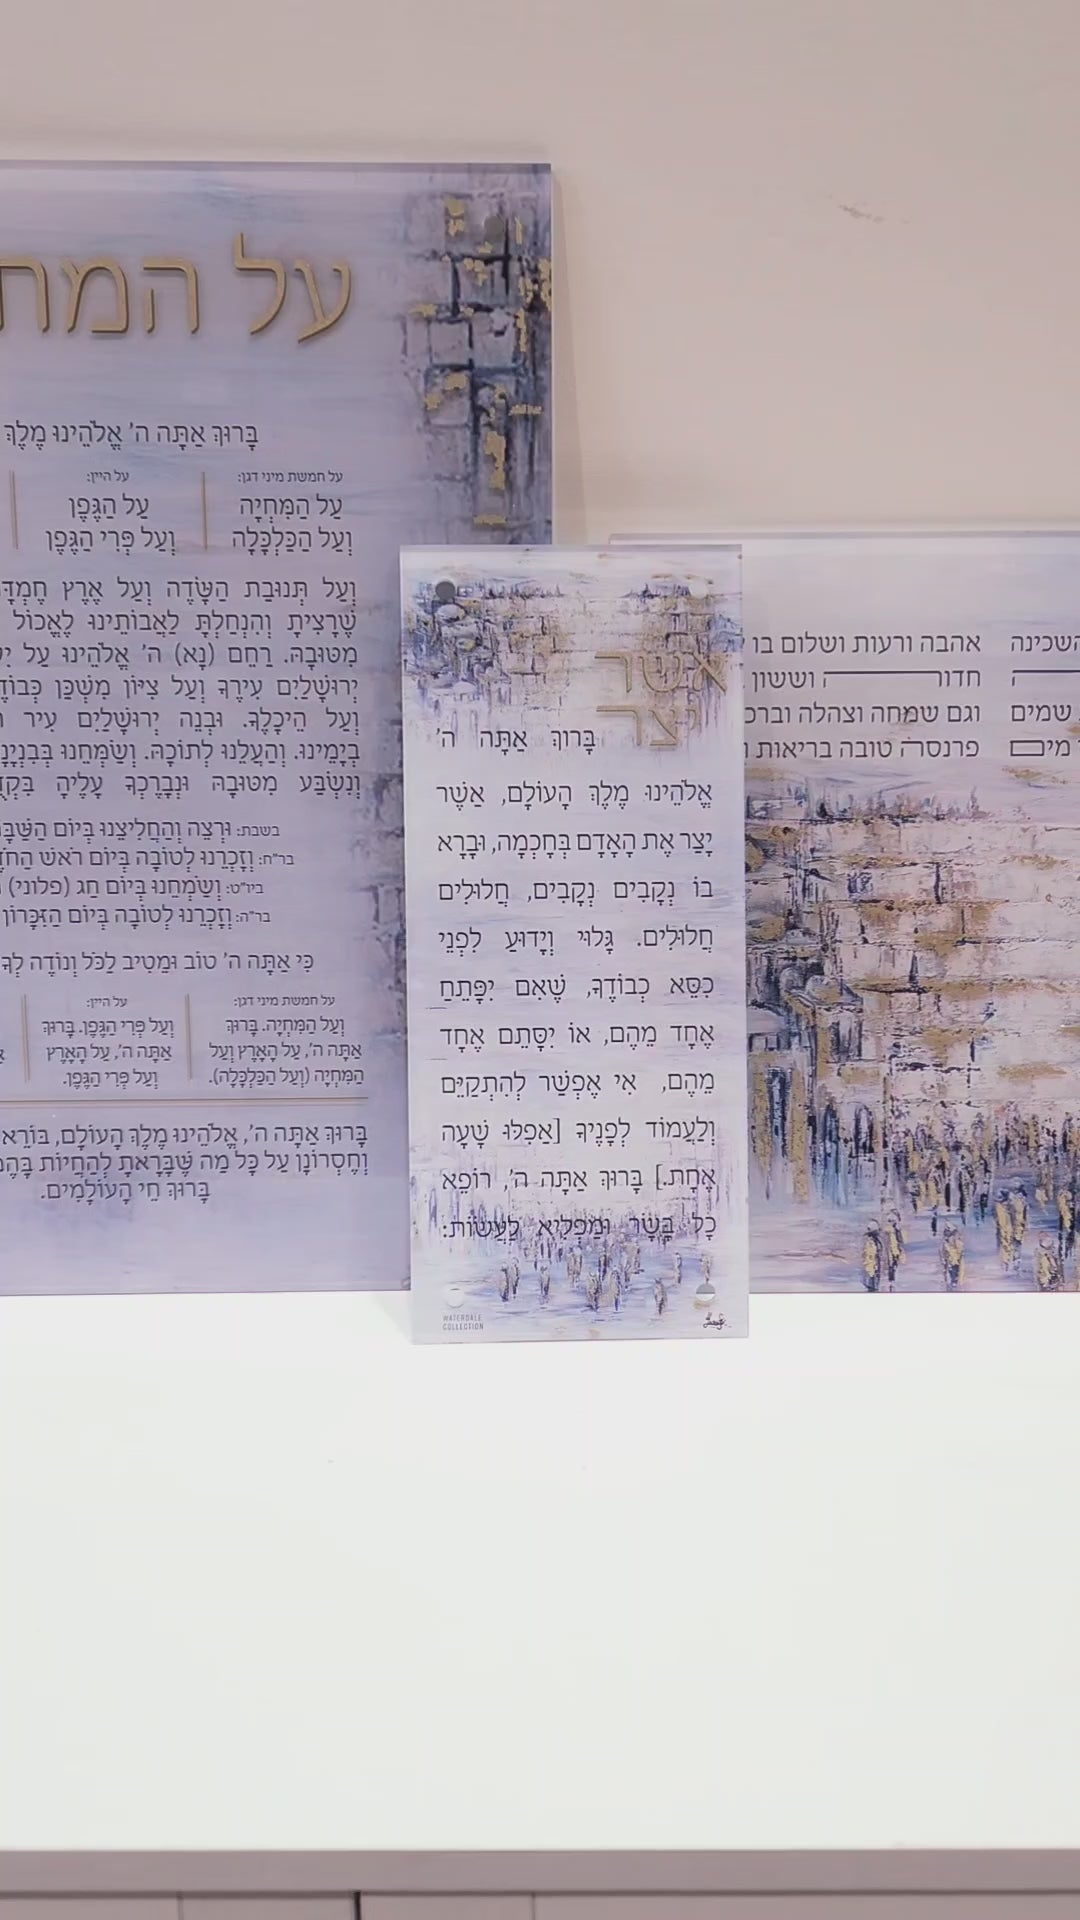 על המח
בָּרוּךְ אַתָּה ה' אֱלֹהֵינוּ מֶלֶךְ
על חמשת מיני דגן:
עַל הַמִּחְיָה
וְעַל הַכַּלְכָּלָה
על היין:
עַל הַגֶּפֶן
וְעַל פְּרִי הַגֶּפֶן
וְעַל תְּנוּבַת הַשָּׂדֶה וְעַל אֶרֶץ חֶמְדָּ
שֶׁרָצִיתָ וְהִנְחַלְתָּ לַאֲבוֹתֵינוּ לֶאֱכוֹל
מִטּוּבָהּ. רַחֵם (נָא) ה' אֱלֹהֵינוּ עַל
יְרוּשָׁלַיִם עִירֶךָ וְעַל צִיּוֹן מִשְׁכַּן כְּבוֹדֶ
וְעַל הֵיכָלֶךָ. וּבְנֵה יְרוּשָׁלַיִם עִיר
בְיָמֵינוּ. וְהַעֲלֵנוּ לְתוֹכָהּ. וְשַׂמְּחֵנוּ בְּבִנְיָנָ
וְנִשְׂבַּע מִטּוּבָהּ וּנְבָרֶכְךָ עָלֶיהָ בִּקְדֻ
בשבת: וּרְצֵה וְהַחֲלִיצֵנוּ בְּיוֹם הַשַּׁבָּ
בר"ח: וְזָכְרֵנוּ לְטוֹבָה בְּיוֹם רֹאשׁ הַחֹדֶ
ביו"ט: וְשַׂמְּחֵנוּ בְּיוֹם חַג (פלוני)
בר"ה: וְזָכְרֵנוּ לְטוֹבָה בְּיוֹם הַזִּכָּרוֹן
כִּי אַתָּה ה' טוֹב וּמֵטִיב לַכֹּל וְנוֹדֶה לְךָ
על חמשת מיני דגן:
וְעַל הַמִּחְיָה. בָּרוּךְ
אַתָּה ה', עַל הָאָרֶץ וְעַל
הַמִּחְיָה (וְעַל הַכַּלְכָּלָה).
על היין:
וְעַל פְּרִי הַגֶּפֶן. בָּרוּךְ
אַתָּה ה', עַל הָאָרֶץ
וְעַל פְּרִי הַגֶּפֶן.
בָּרוּךְ אַתָּה ה', אֱלֹהֵינוּ מֶלֶךְ הָעוֹלָם, בּוֹרֵא
וְחֶסְרוֹנָן עַל כָּל מַה שֶּׁבָּרָאתָ לְהַחֲיוֹת בָּהֶם
בָּרוּךְ חֵי הָעוֹלָמִים.
אשר
יצר
בָּרוּךְ אַתָּה ה'
אֱלֹהֵינוּ מֶלֶךְ הָעוֹלָם, אֲשֶׁר
יָצַר אֶת הָאָדָם בְּחָכְמָה, וּבָרָא
בוֹ נְקָבִים נְקָבִים, חֲלוּלִים
חֲלוּלִים. גָּלוּי וְיָדוּעַ לִפְנֵי
כִסֵּא כְבוֹדֶךָ, שֶׁאִם יִפָּתֵחַ
אֶחָד מֵהֶם, אוֹ יִסָּתֵם אֶחָד
מֵהֶם, אִי אֶפְשַׁר לְהִתְקַיֵּם
וְלַעֲמוֹד לְפָנֶיךָ [אֲפִלּוּ שָׁעָה
אֶחָת.] בָּרוּךְ אַתָּה ה', רוֹפֵא
כָל בָּשָׂר וּמַפְלִיא לַעֲשׂוֹת:
WATERDALE
COLLECTION
השכינה
שמים
מים
אהבה ורעות ושלום בו
חדור וששון
וגם שמחה וצהלה וברכ
פרנסה טובה בריאות